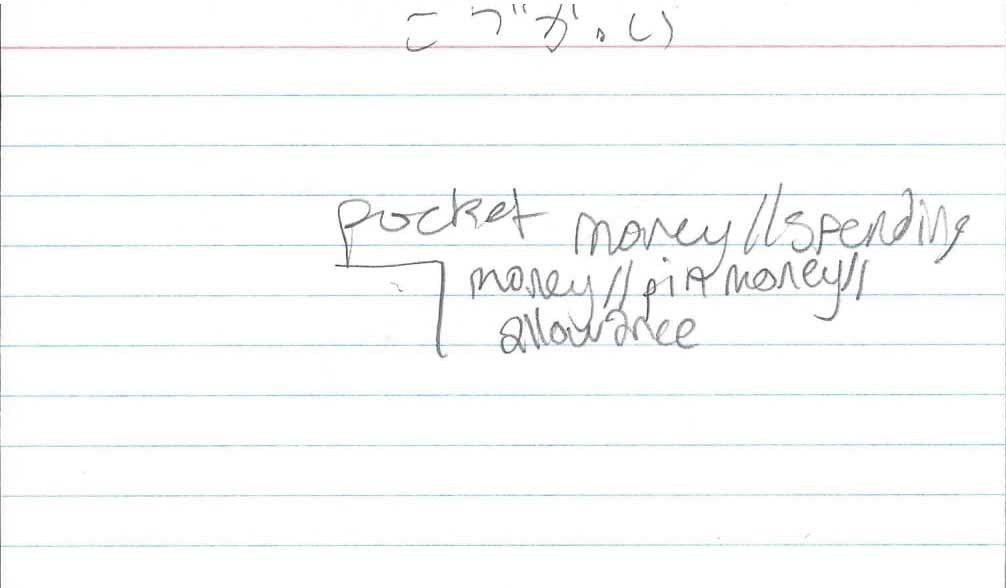 こづかい
pocket money//spending
money//pin money//
allowance